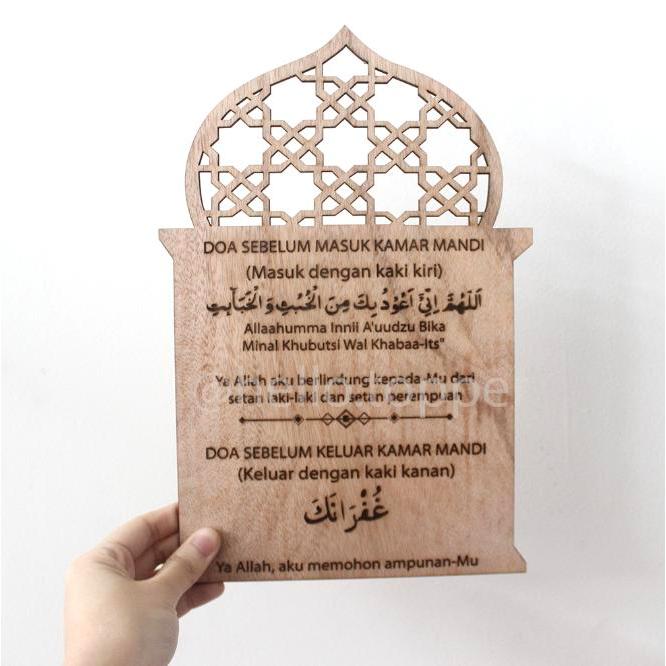 DOA SEBELUM MASUK KAMAR MANDI
(Masuk dengan kaki kiri)
اَللّٰهُمَّ اِنِّيْ اَعُوْذُ بِكَ مِنَ الْخُبُثِ وَ الْخَبَآئِثِ
Allaahumma Innii A'uudzu Bika
Minal Khubutsi Wal Khabaa-its"
Ya Allah aku berlindung kepada-Mu dari
setan laki-laki dan setan perempuan
DOA SEBELUM KELUAR KAMAR MANDI
(Keluar dengan kaki kanan)
غُفْرَانَكَ
Ya Allah, aku memohon ampunan-Mu